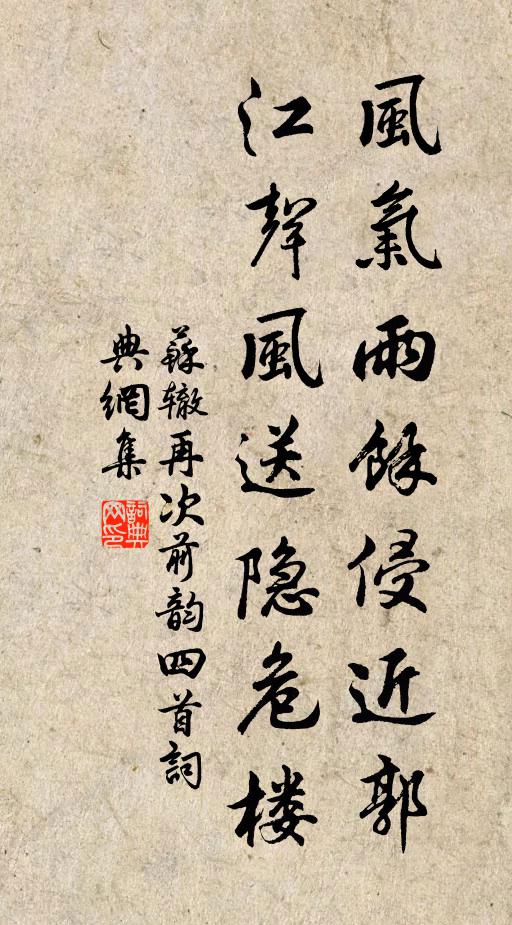 風氣雨餘侵近郭
江聲風送隐危楼
蘇辙再次前韵四首詞
典網集
詞典
网印